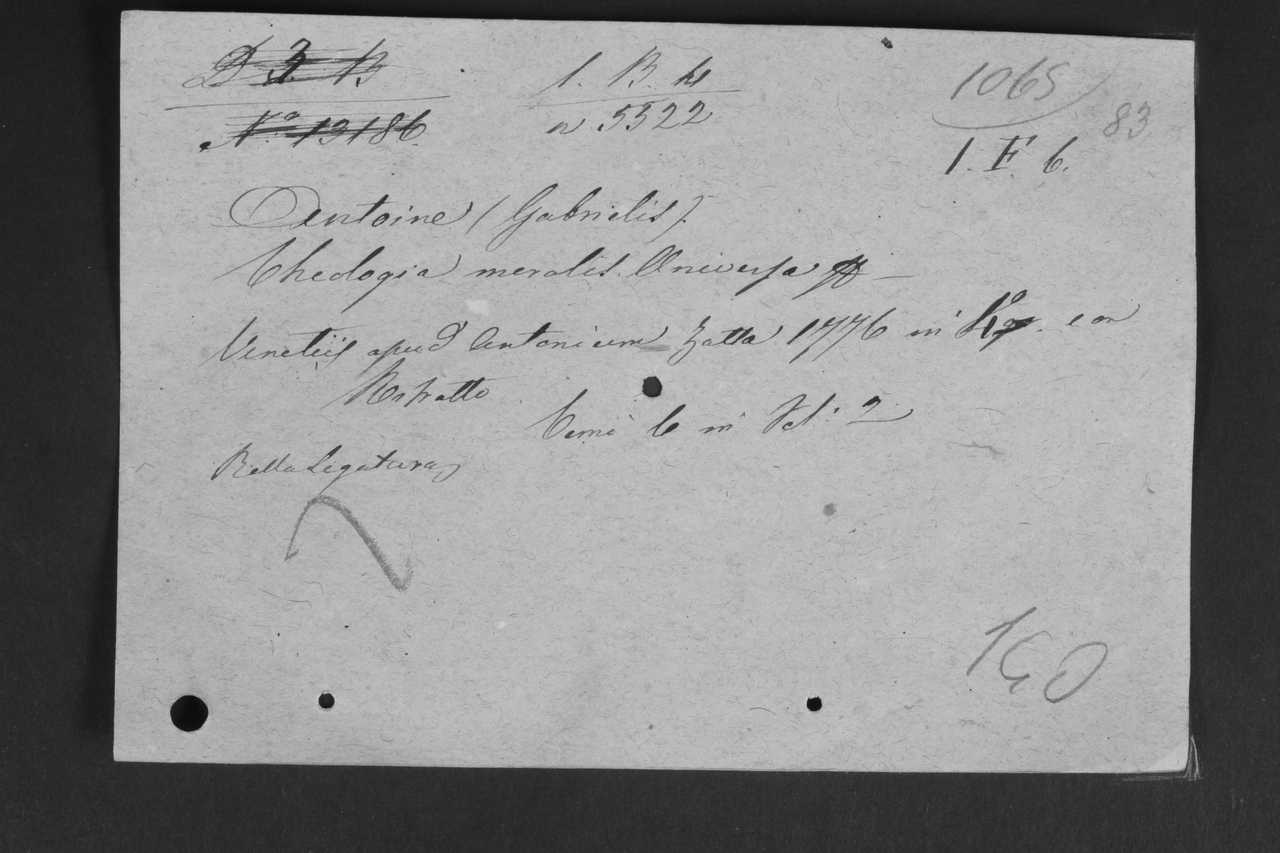 D 3 B
1. B. 4
1065
83
Nº 13186.
n 5522
1. F. 6.
Antoine (Gabrielis).
Theologia moralis Universa
Venetiis apud Antonium Zatta 1776 in con
Ritratto
Tomi 6 in Vol: 2
Bella Legatura